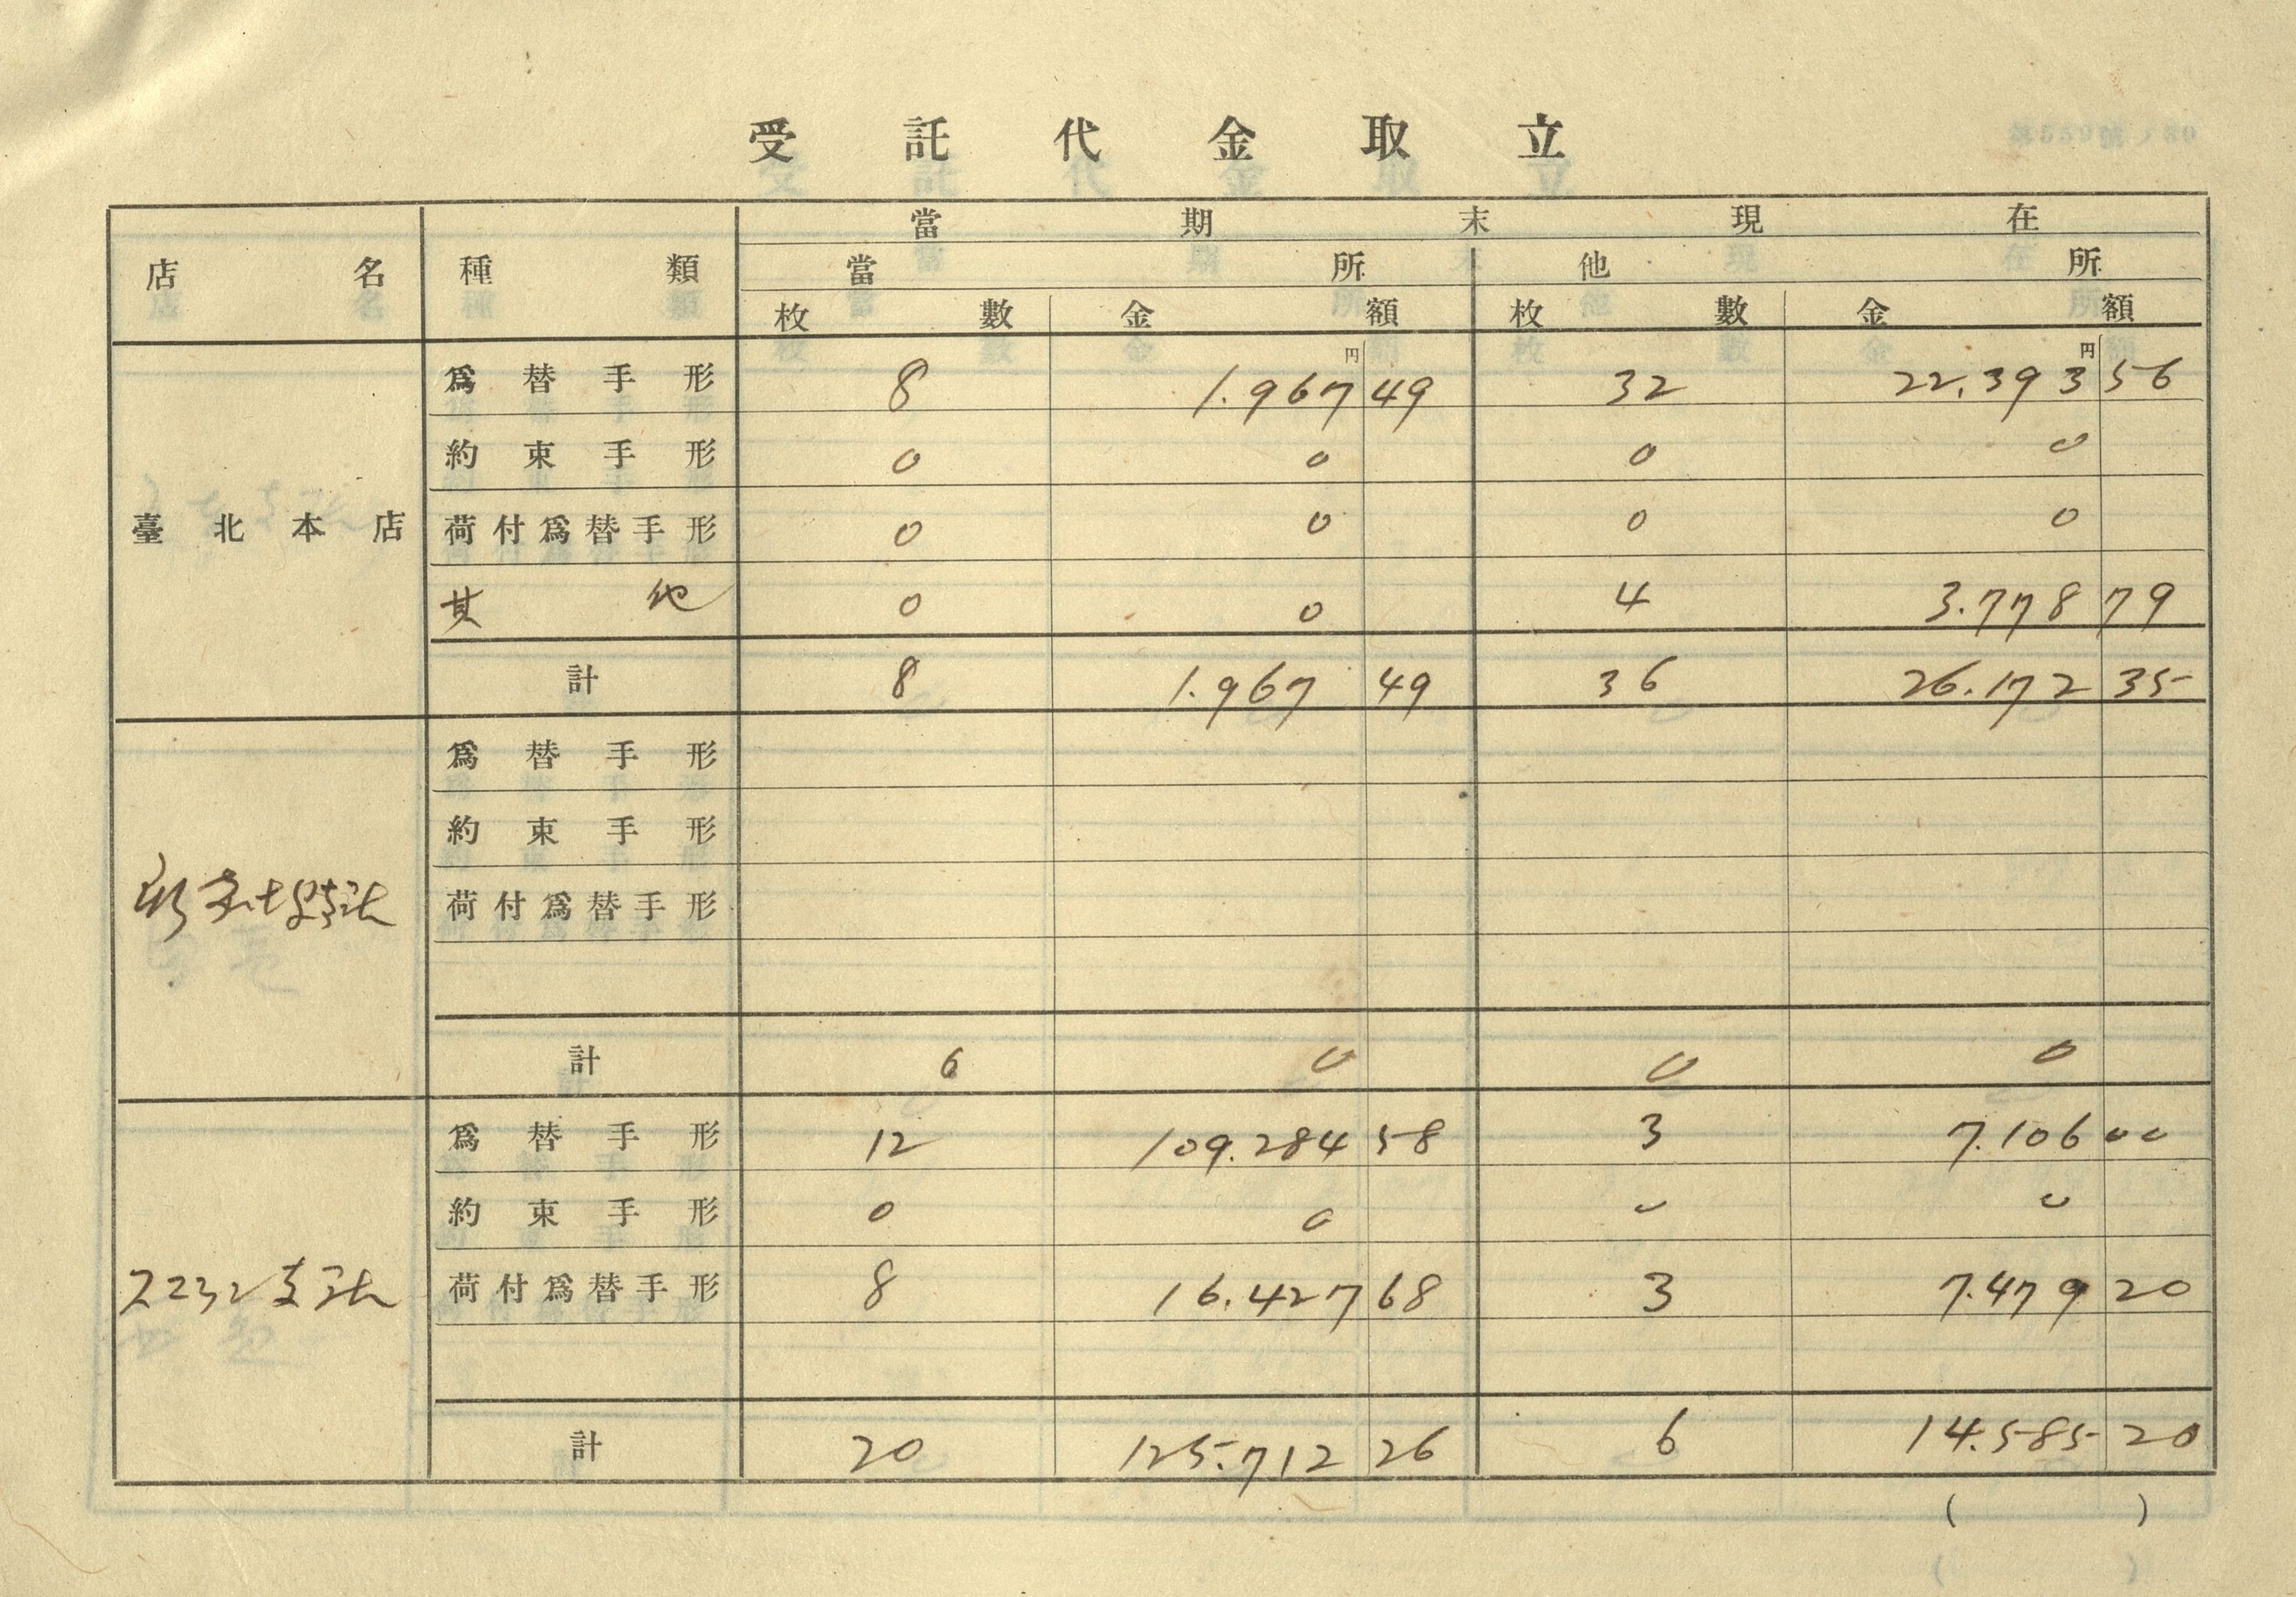 受託代金取立
店名 種類 當期末現在
當所 他所
枚數 金額 枚數 金額
円 円
爲替手形 8 1.967 49 32 22.393 56
約束手形 0 0 0 0
臺北本店 荷付爲替手形 0 0 0 0
其他 0 0 4 3.778 79
計 8 1.967 49 36 26.172 35
爲替手形
約束手形
荷付爲替手形
計 0 0 0 0
爲替手形 12 109.284 58 3 7.106 00
約束手形 0 0 0 0
荷付爲替手形 8 16.427 68 3 7.479 20
計 20 125.712 26 6 14.585 20
( )